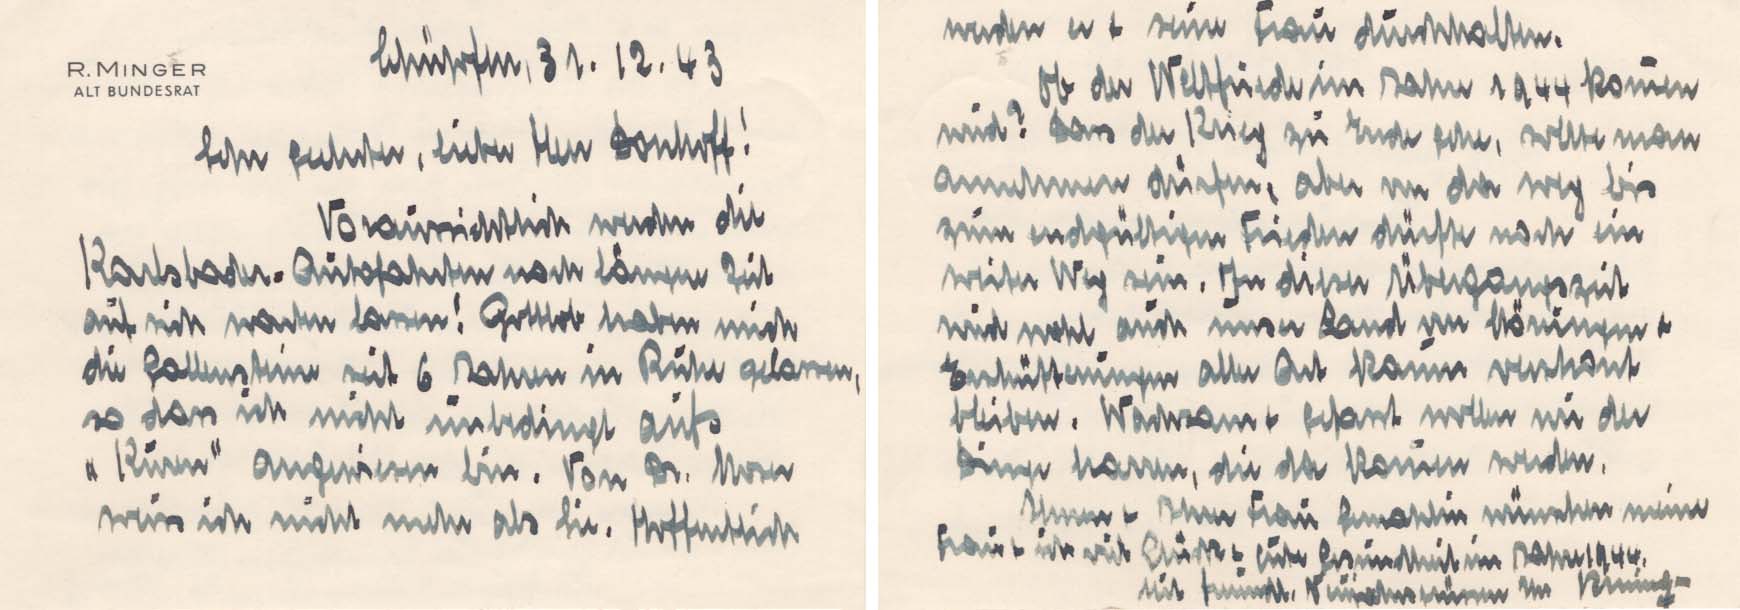 R. MINGER
ALT BUNDESRAT
Schüpfen, 31.12.43
Sehr geehrter, lieber Herr Bonhoff!
Voraussichtlich werden die
Karlsbader-Autofahrten noch längere Zeit
auf sich warten lassen! Gottlob haben mich
die Gallensteine seit 6 Jahren in Ruhe gelassen,
so dass ich nicht unbedingt aufs
"Kuren" angewiesen bin. Von Dr. Moser
weiss ich nicht mehr als Sie. Hoffentlich
werden er & seine Frau durchhalten.
Ob der Weltfriede im Jahre 1944 kommen
wird? Dass der Krieg zu Ende gehe, sollte man
annehmen dürfen, aber von da weg bis
zum endgültigen Frieden dürfte noch ein
weiter Weg sein. In dieser Übergangszeit
wird wohl auch unser Land von Störungen &
Erschütterungen aller Art kaum verschont
bleiben. Wachsam & gefasst wollen wir der
Dinge harren, die da kommen werden.
Ihnen & Ihrer Frau Gemahlin wünschen meine
Frau & ich viel Glück & gute Gesundheit im Jahre 1944.
Mit freundl. Neujahrsgrüssen Ihr Rud. Minger